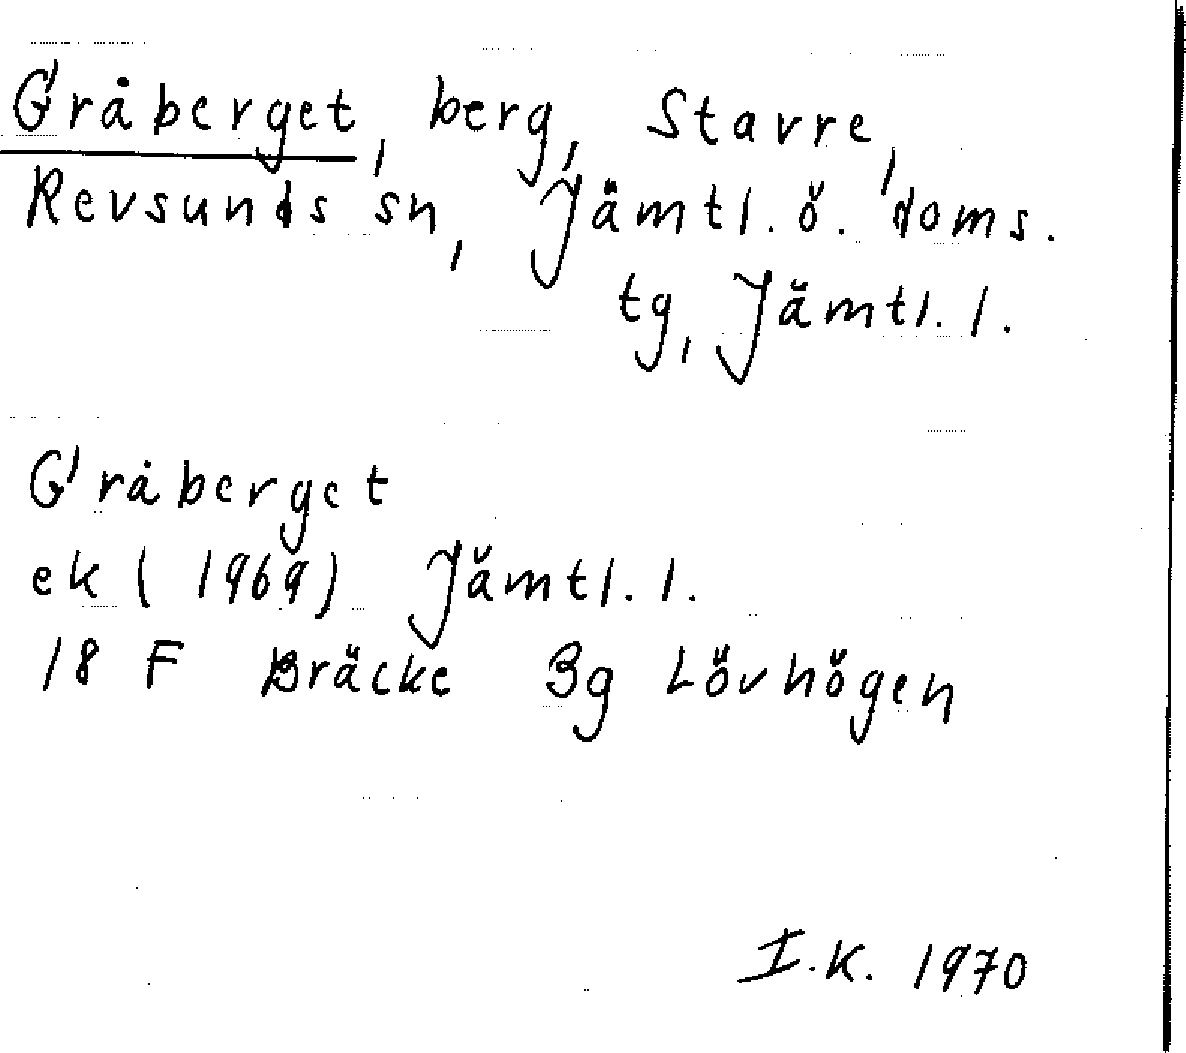 Gråberget, berg, Stavre,
Revsunds sn, Jämtl. ö. doms.
tg, Jämtl. l.
Gråberget
ek (1969) Jämtl. l.
18 F Bräcke 3g Lövhögen
I.K. 1970